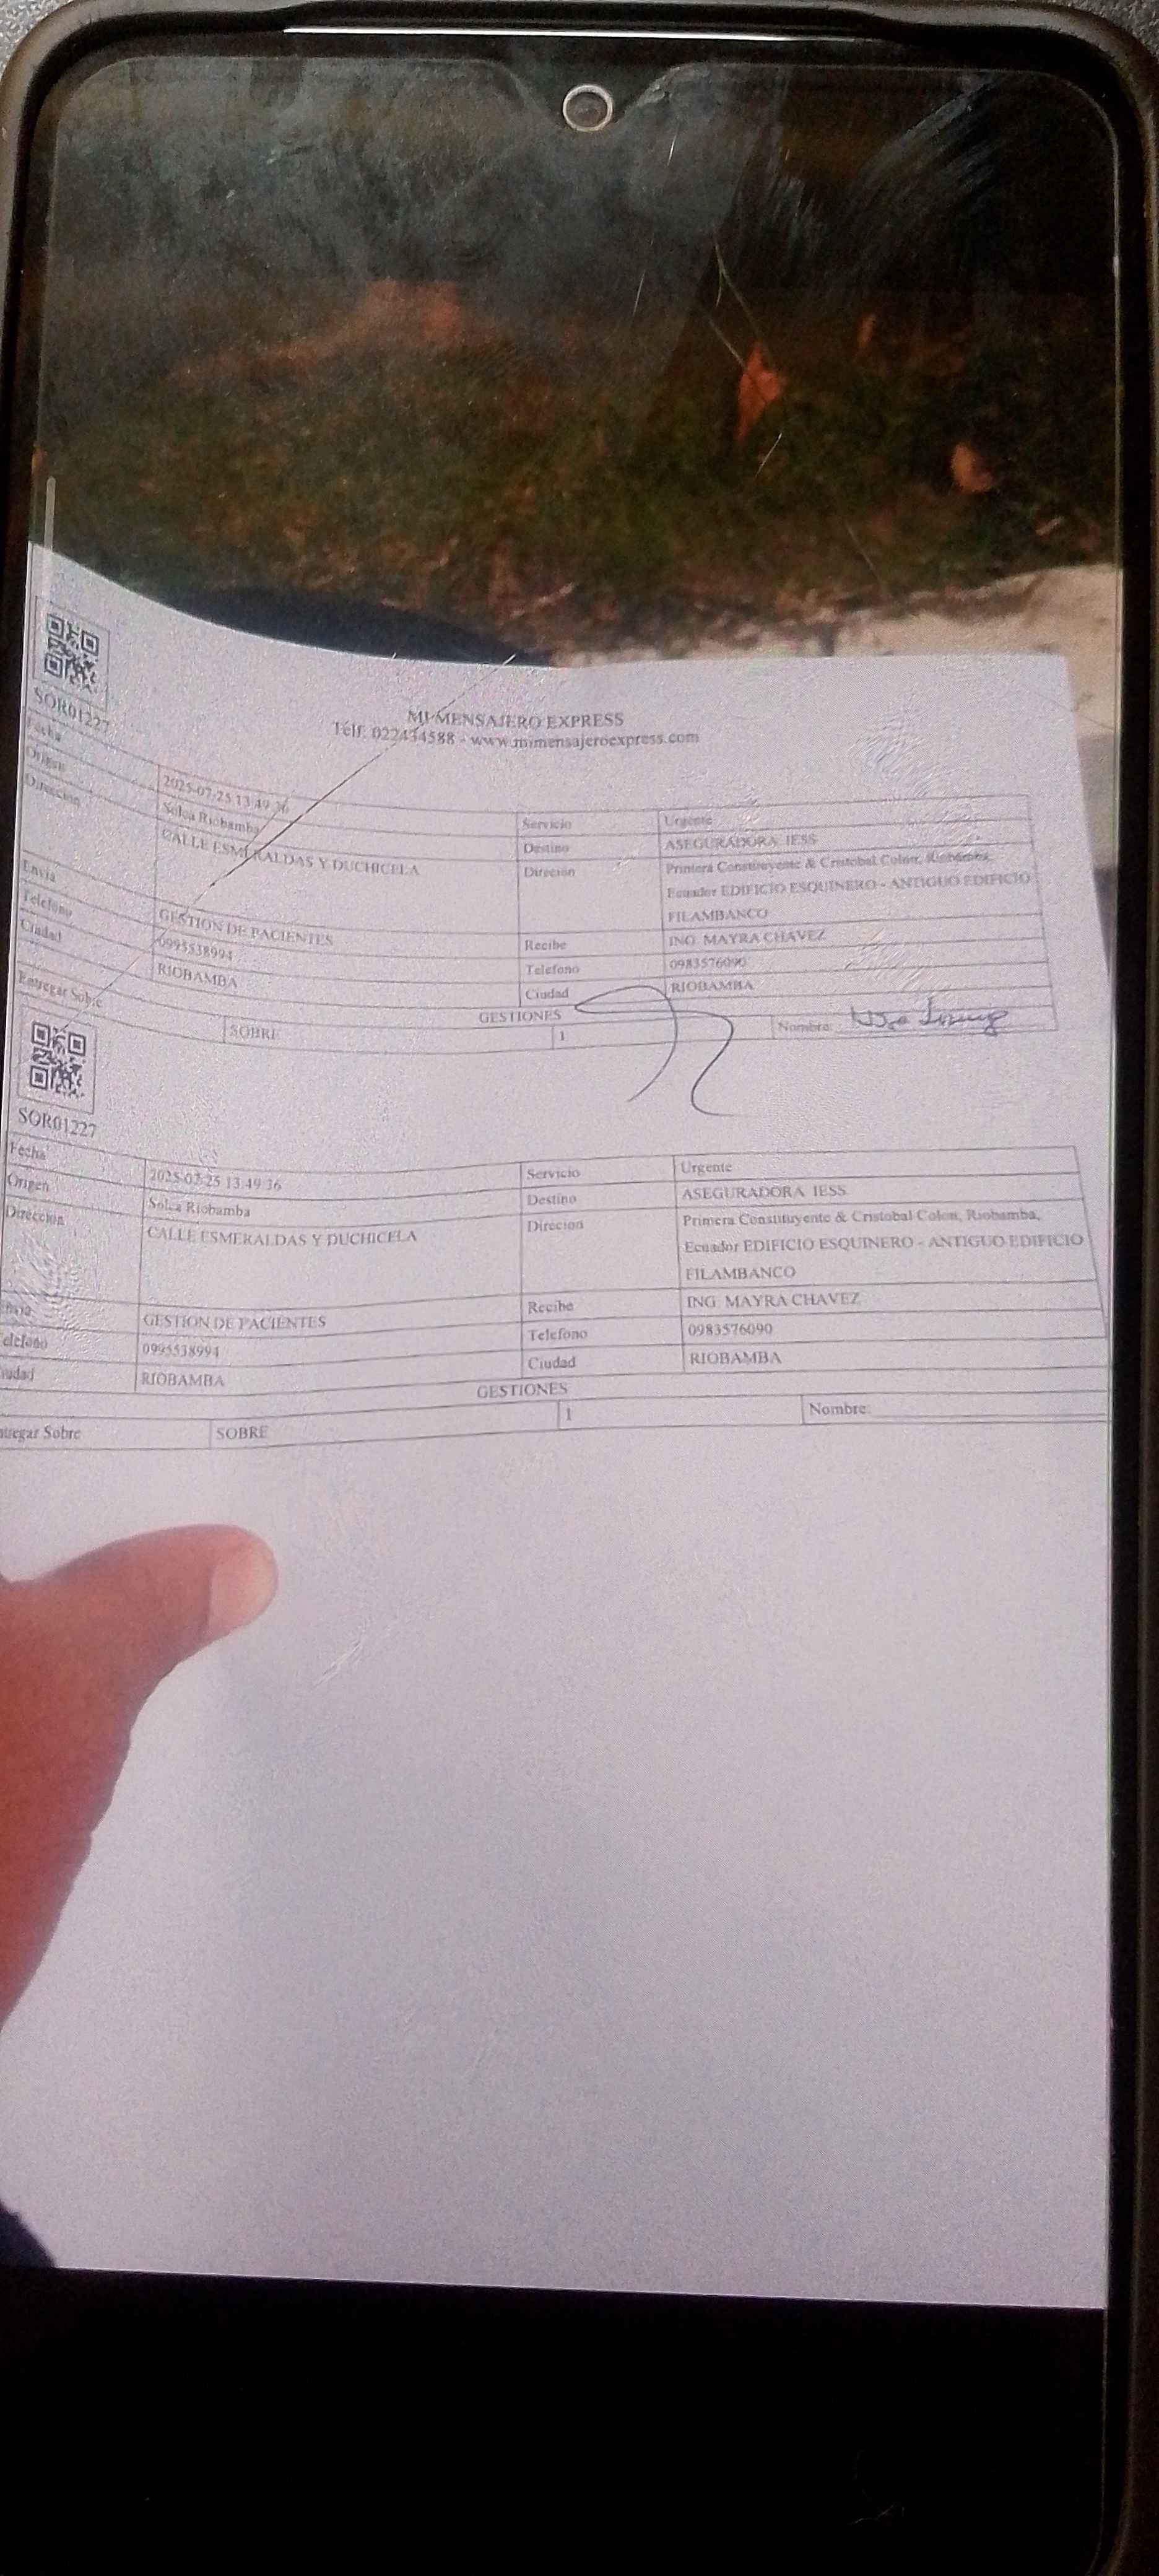 MI MENSAJERO EXPRESS
Telf: 022434588 - www.mimensajeroexpress.com
SOR01227
Fecha 2025-07-25 13:49:36 Servicio Urgente
Origen Solca Riobamba Destino ASEGURADORA IESS
Direccion CALLE ESMERALDAS Y DUCHICELA Direcion Primera Constituyente & Cristobal Colon, Riobamba,
Ecuador EDIFICIO ESQUINERO - ANTIGUO EDIFICIO
FILAMBANCO
Envia GESTION DE PACIENTES Recibe ING. MAYRA CHAVEZ
Telefono 0995538994 Telefono 0983576090
Ciudad RIOBAMBA Ciudad RIOBAMBA
GESTIONES
Entregar Sobre SOBRE 1 Nombre:
SOR01227
Fecha 2025-07-25 13:49:36 Servicio Urgente
Origen Solca Riobamba Destino ASEGURADORA IESS
Direccion CALLE ESMERALDAS Y DUCHICELA Direcion Primera Constituyente & Cristobal Colon, Riobamba,
Ecuador EDIFICIO ESQUINERO - ANTIGUO EDIFICIO
FILAMBANCO
GESTION DE PACIENTES Recibe ING. MAYRA CHAVEZ
elefono 0995538994 Telefono 0983576090
iudad RIOBAMBA Ciudad RIOBAMBA
GESTIONES
ntregar Sobre SOBRE 1 Nombre: